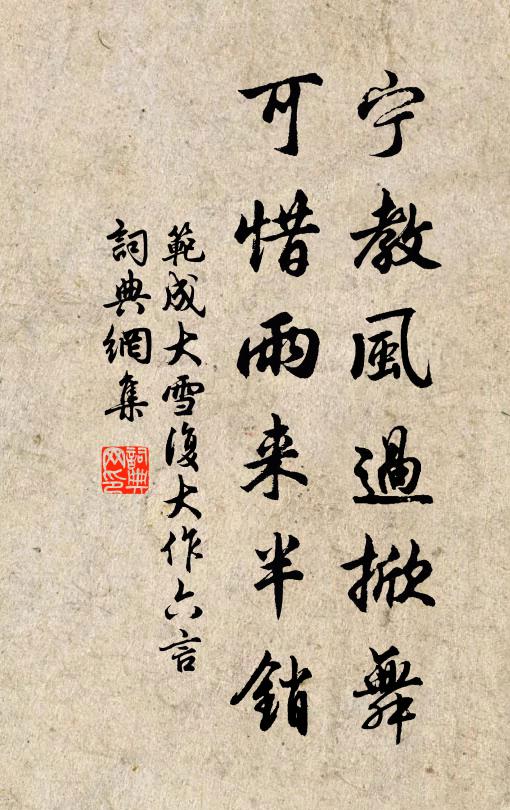 宁教風過掀舞
可惜雨来半銷
範成大雪復大作六言
詞典網集
詞典网印